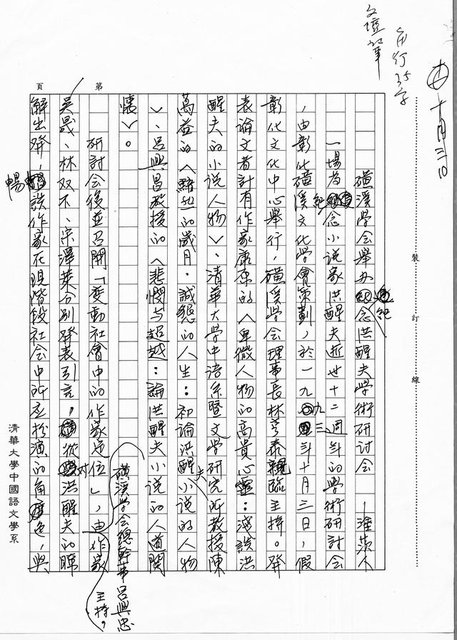 十月三日
每行35字
文壇記事
裝訂線
第
頁
磺溪學會舉辦紀念洪醒夫學術研討會
一場為紀念小說家洪醒夫逝世十二週年的學術研討會
，由彰化磺溪文化學會策劃，於一九九三年十月三日，假
彰化文化中心舉行，磺溪學會理事長林亨泰親臨主持。發
表論文者計有作家康原的〈卑微人物的高貴心靈：淺談洪
醒夫的小說人物〉、清華大學中語系暨文學研究所教授陳
萬益的〈的歲月，誠懇的人生：初論洪醒夫小說的人物
〉、呂興昌教授的〈悲憫与超越：論洪醒夫小說的人道關
懷〉。
研討會後並召開「變動社會中的作家地位」，由作家
磺溪學會總幹事呂興忠
主持，
吳晟、林双不、宋澤萊分別發表引言，從洪醒夫的
解出發，暢談作家在現階段社會中所应扮演的角色，與
清華大學中國語文學系